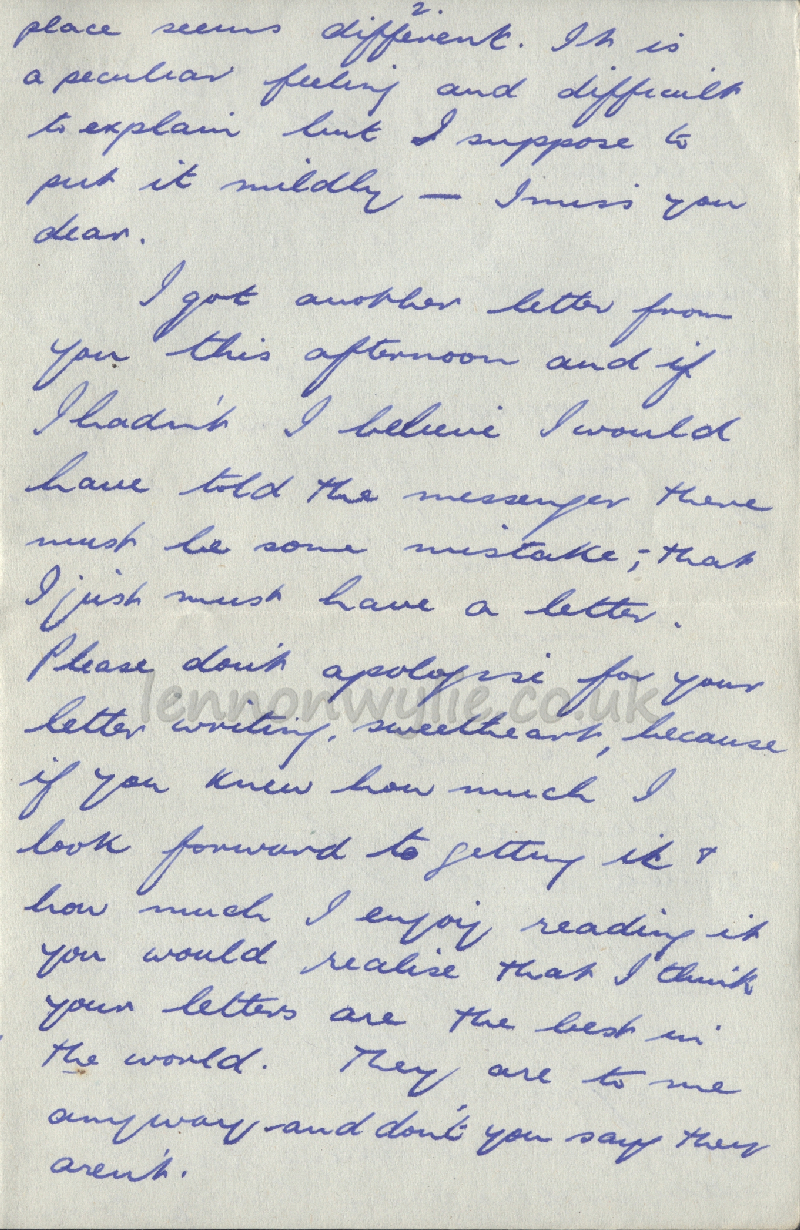 2.
place seems different. It is
a peculiar feeling and difficult
to explain but I suppose to
put it mildly — I miss you
dear.
I got another letter from
you this afternoon and if
I hadn't I believe I would
have told the messenger there
must be some mistake; that
I just must have a letter.
Please don't apologise for your
lennonwylie.co.uk
letter writing, sweetheart, because
if you knew how much I
look forward to getting it &
how much I enjoy reading it
you would realise that I think
your letters are the best in
the world. They are to me
anyway and don't you say they
aren't.